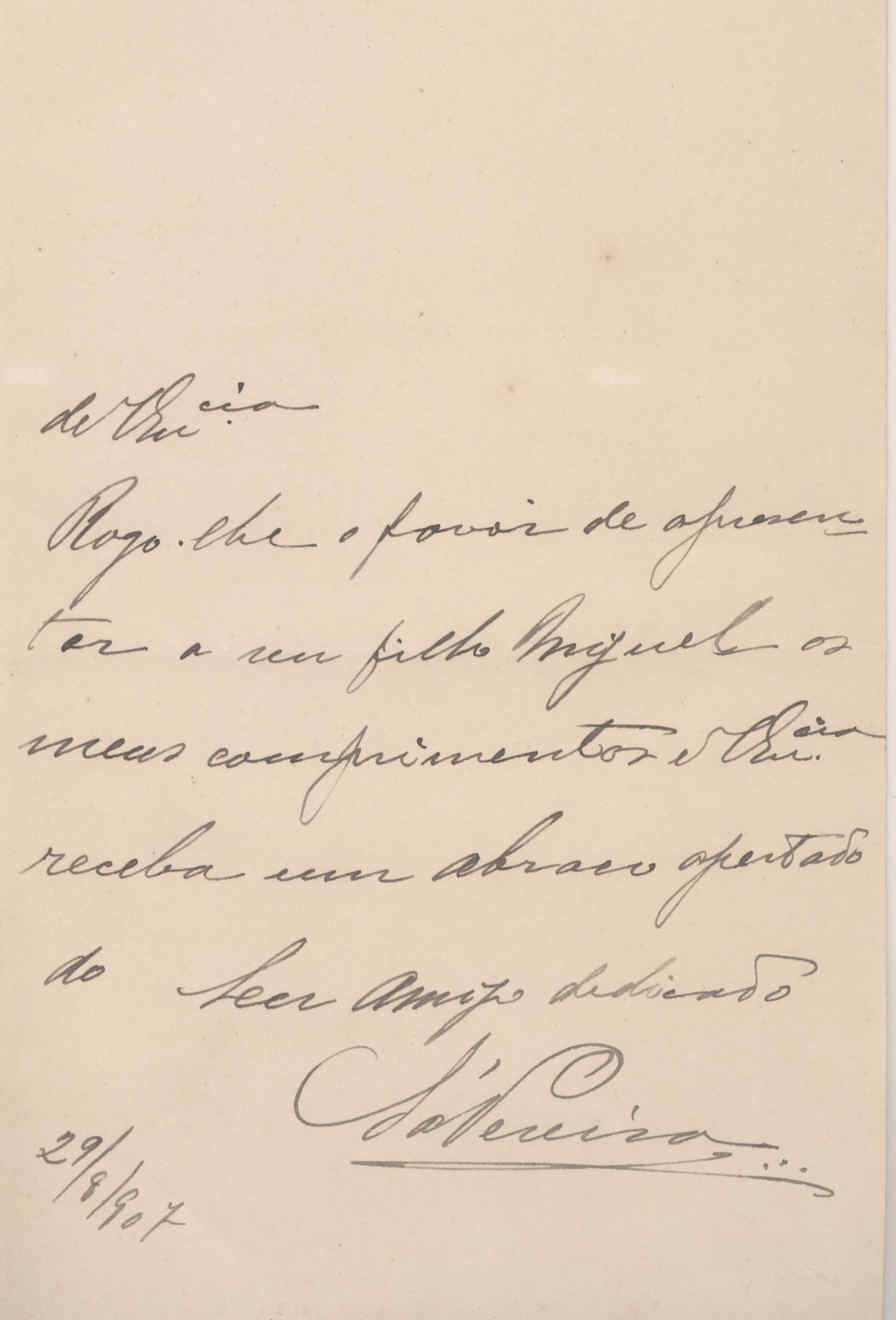 de V. Ex.cia
Rogo-lhe o favor de apresen-
tar a seu filho Miguel os
meus comprimentos e V. Ex.cia
receba um abraco apertado
do Seu Amigo dedicado
Sá Pereira
29/8/907